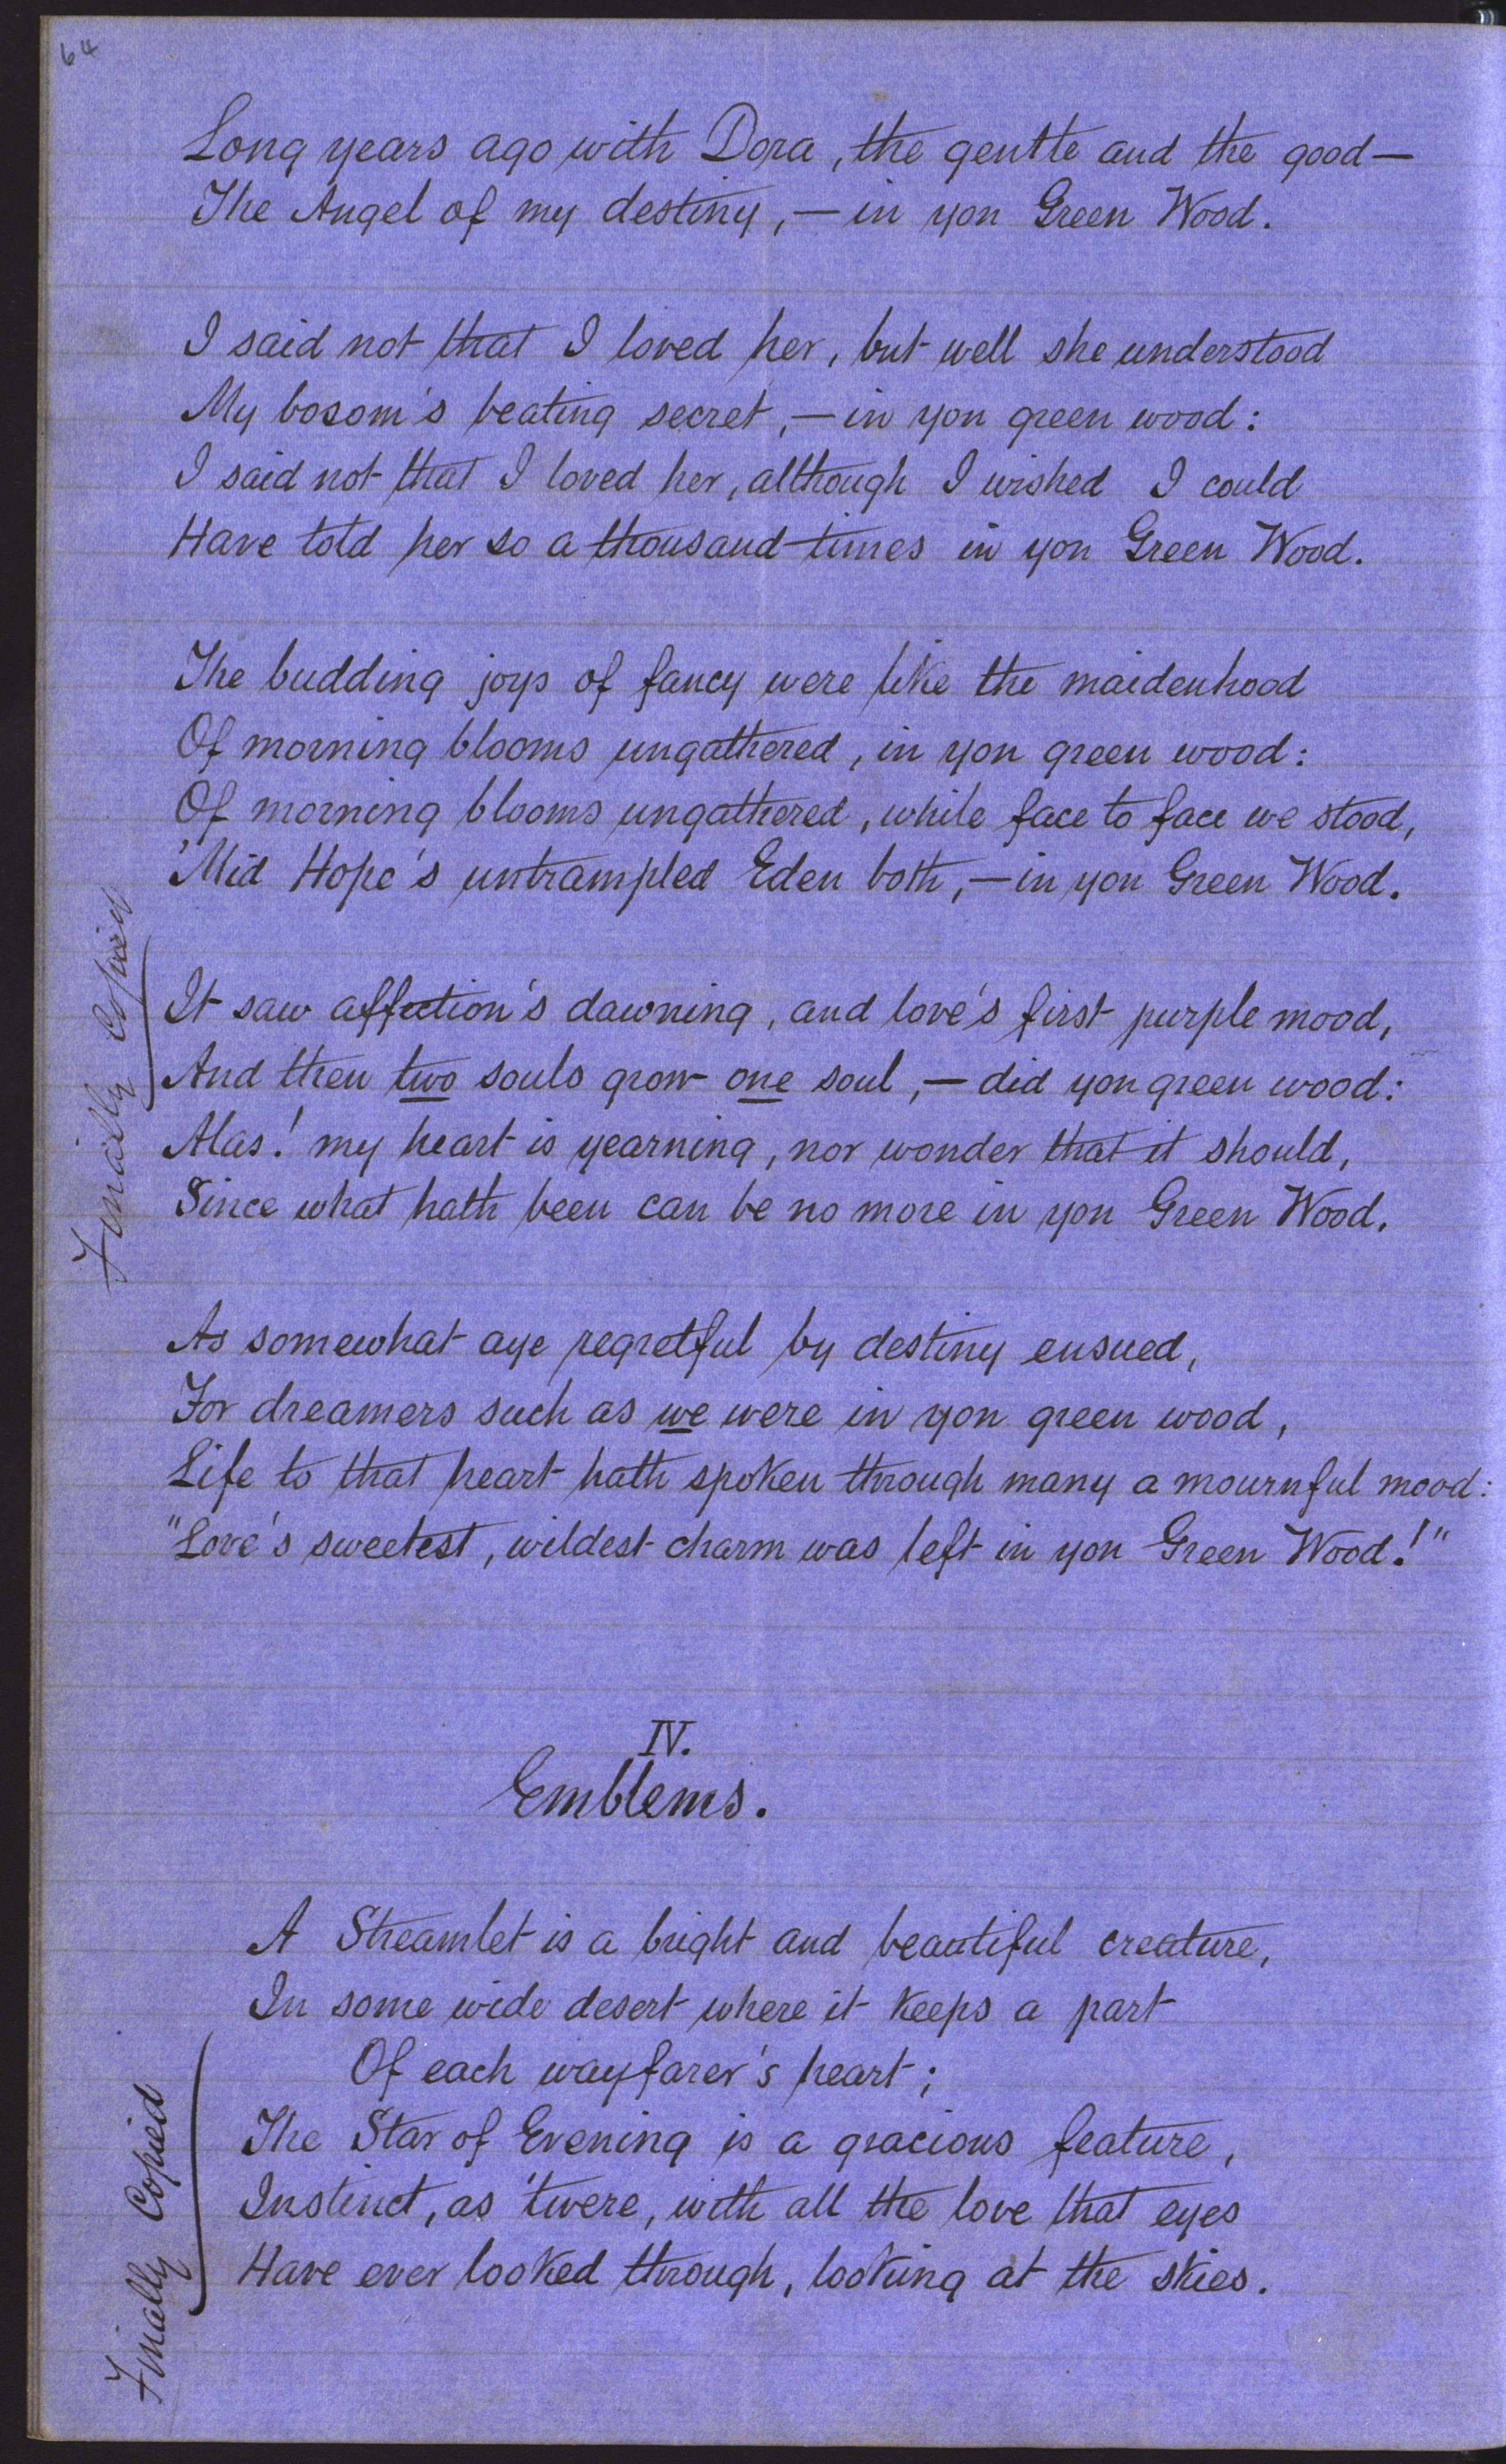 64
Long years ago with Dora, the gentle and the good—
The Angel of my destiny,—in yon Green Wood.
I said not that I loved her, but well she understood
My bosom's beating secret,—in yon green wood:
I said not that I loved her, although I wished I could
Have told her so a thousand times in yon Green Wood.
The budding joys of fancy were like the maidenhood
Of morning blooms ungathered, in yon green wood:
Of morning blooms ungathered, while face to face we stood,
'Mid Hope's untrampled Eden both,—in yon Green Wood.
Finally Copied
It saw affection's dawning, and love's first purple mood,
And then two souls grow one soul,—did yon green wood:
Alas! my heart is yearning, nor wonder that it should,
Since what hath been can be no more in yon Green Wood.
As somewhat aye regretful by destiny ensued,
For dreamers such as we were in yon green wood,
Life to that heart hath spoken through many a mournful mood:
"Love's sweetest, wildest charm was left in yon Green Wood!"
IV.
Emblems.
A Streamlet is a bright and beautiful creature,
In some wide desert where it keeps a part
Of each wayfarer's heart;
The Star of Evening is a gracious feature,
Instinct, as 'twere, with all the love that eyes
Have ever looked through, looking at the skies.
Finally Copied